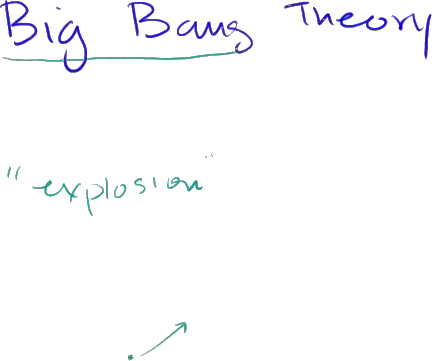 Big Bang Theory
"explosion"